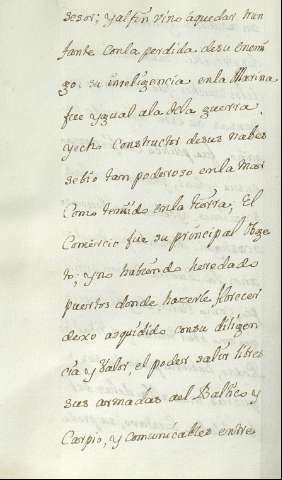 sesor; y al fin vino à quedar triun
fante con la perdida de su enemi
go: su inteligencia en la Marina
fue ygual a la dela guerra,
y echo constructor de sus nabes
se bio tan poderoso en la mar
como temido en la tierra; El
Comercio fue su principal Obge
to; y no habiendo heredado
puertos donde hacerle florecer
dexo adquirido con su diligen
cia y Valor el poder salir libres
sus armadas del Baltico y
Caspio, y comunicables entre